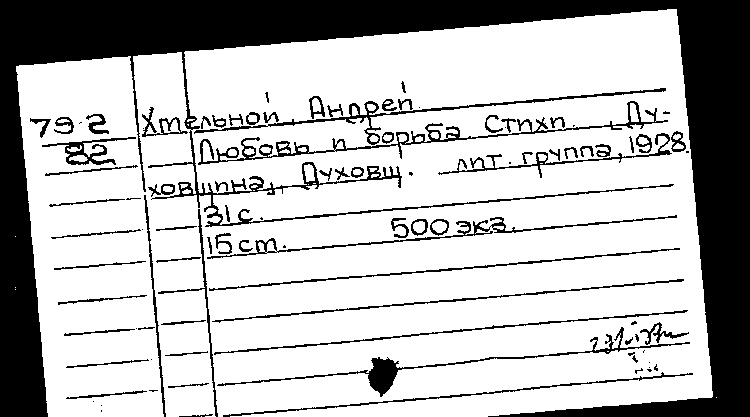 79-2 Хмельной, Андрей
82 Любовь и борьба. Стихи. , Ду-
ховщина,, Духовщ. лит. группа, 1928.
31 с.
15 cm. 500 экз.